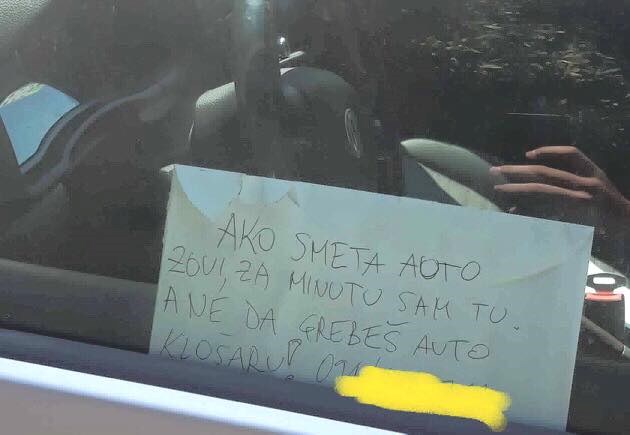 AKO SMETA AUTO
ZOVI, ZA MINUTU SAM TU.
A NE DA GREBEŠ AUTO
KLOŠARU! 091